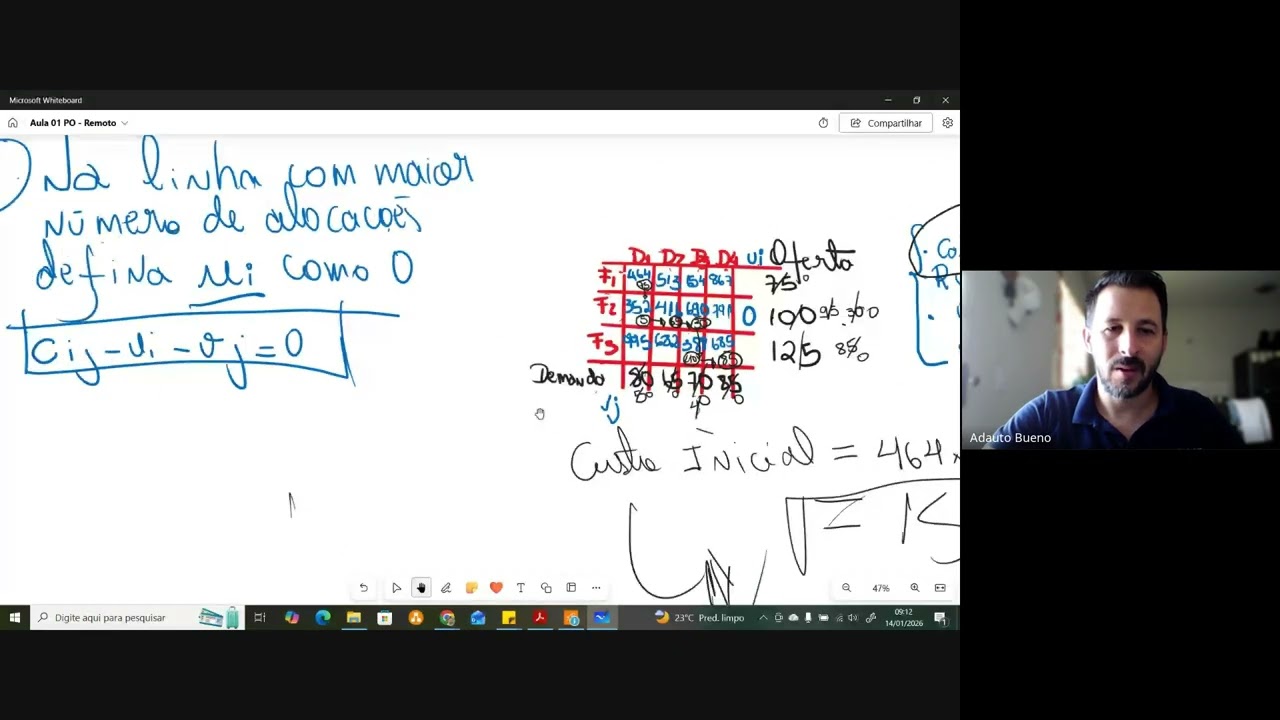 Microsoft Whiteboard
Aula 01 PO - Remoto
Compartilhar
Na linha com maior
número de alocações
defina ui como 0
Cij - ui - vj = 0
D1 D2 D3 D4 ui Oferta
F1 464 513 654 867 75 0
F2 352 416 690 791 0 100
F3 995 682 388 685 125
Demanda 80 65 70 85
vj
Custo Inicial = 464
Adauto Bueno
47%
Digite aqui para pesquisar
23°C Pred. limpo
09:12
14/01/2026